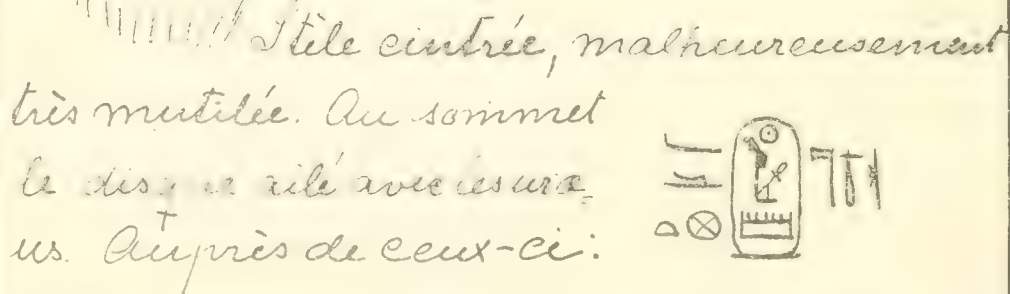 Stèle cintrée, malheureusement
très mutilée. Au sommet
le disque ailé avec les uræ-
us. Auprès de ceux-ci: